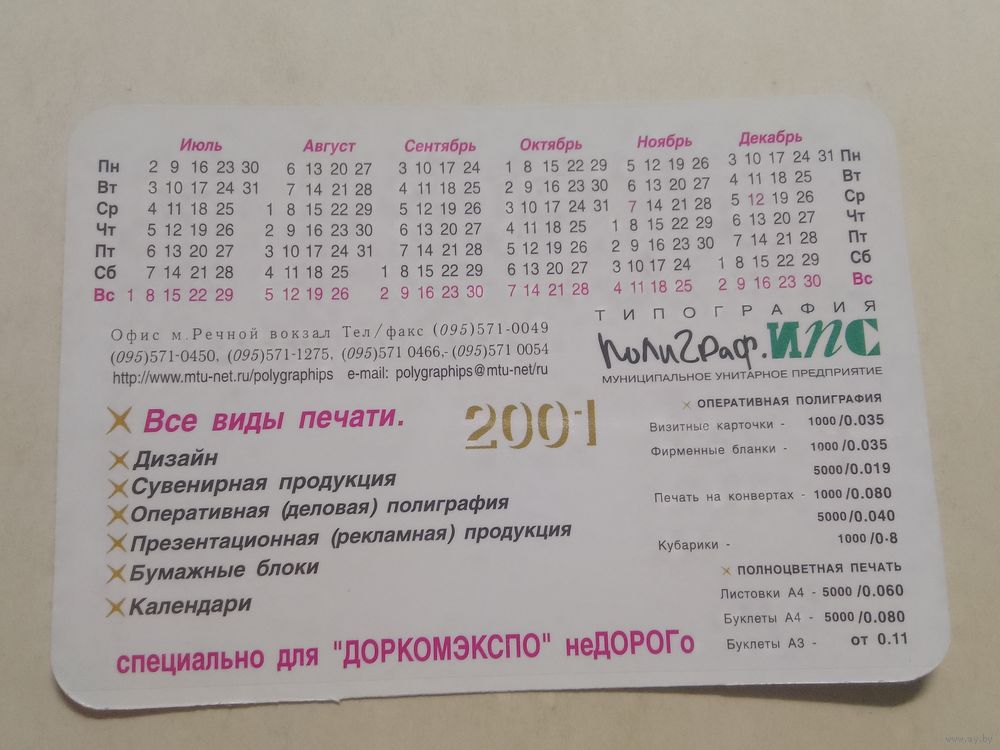 Июль Август Сентябрь Октябрь Ноябрь Декабрь
Пн 2 9 16 23 30 6 13 20 27 3 10 17 24 1 8 15 22 29 5 12 19 26 3 10 17 24 31 Пн
Вт 3 10 17 24 31 7 14 21 28 4 11 18 25 2 9 16 23 30 6 13 20 27 4 11 18 25 Вт
Ср 4 11 18 25 1 8 15 22 29 5 12 19 26 3 10 17 24 31 7 14 21 28 5 12 19 26 Ср
Чт 5 12 19 26 2 9 16 23 30 6 13 20 27 4 11 18 25 1 8 15 22 29 6 13 20 27 Чт
Пт 6 13 20 27 3 10 17 24 31 7 14 21 28 5 12 19 26 2 9 16 23 30 7 14 21 28 Пт
Сб 7 14 21 28 4 11 18 25 1 8 15 22 29 6 13 20 27 3 10 17 24 1 8 15 22 29 Сб
Вс 1 8 15 22 29 5 12 19 26 2 9 16 23 30 7 14 21 28 4 11 18 25 2 9 16 23 30 Вс
Офис м.Речной вокзал Тел/факс (095)571-0049
(095)571-0450, (095)571-1275, (095)571 0466,-(095)571 0054
http://www.mtu-net.ru/polygraphips e-mail: polygraphips@mtu-net/ru
ТИПОГРАФИЯ
Полиграф.ИПС
МУНИЦИПАЛЬНОЕ УНИТАРНОЕ ПРЕДПРИЯТИЕ
Все виды печати.
2001
Дизайн
Сувенирная продукция
Оперативная (деловая) полиграфия
Презентационная (рекламная) продукция
Бумажные блоки
Календари
специально для "ДОРКОМЭКСПО" неДОРОГо
ОПЕРАТИВНАЯ ПОЛИГРАФИЯ
Визитные карточки - 1000/0.035
Фирменные бланки - 1000/0.035
5000/0.019
Печать на конвертах - 1000/0.080
5000/0.040
Кубарики - 1000/0-8
ПОЛНОЦВЕТНАЯ ПЕЧАТЬ
Листовки А4 - 5000/0.060
Буклеты А4 - 5000/0.080
Буклеты А3 - от 0.11
www.ay.by